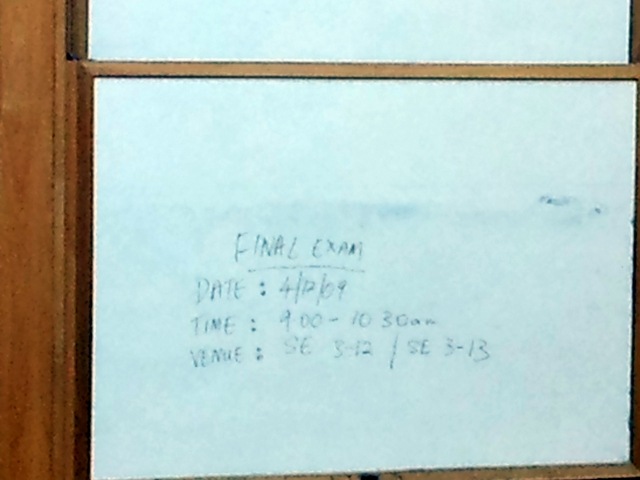 FINAL EXAM
DATE : 4/12/09
TIME : 9 00 - 10 30am
VENUE : SE 3-12 / SE 3-13